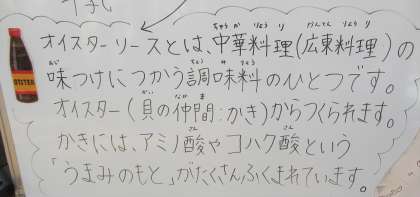 オイスターソースとは、中華料理(広東料理)の
味つけにつかう調味料のひとつです。
オイスター(貝の仲間:かき)からつくられます。
かきには、アミノ酸やコハク酸という
「うまみのもと」がたくさんふくまれています。